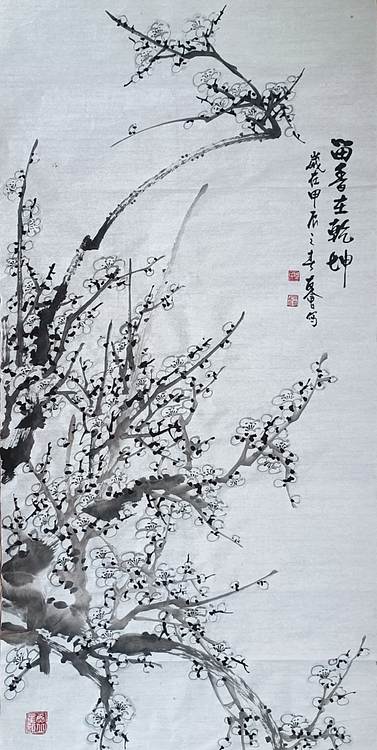 留香在乾坤
歲在甲辰之春
寫